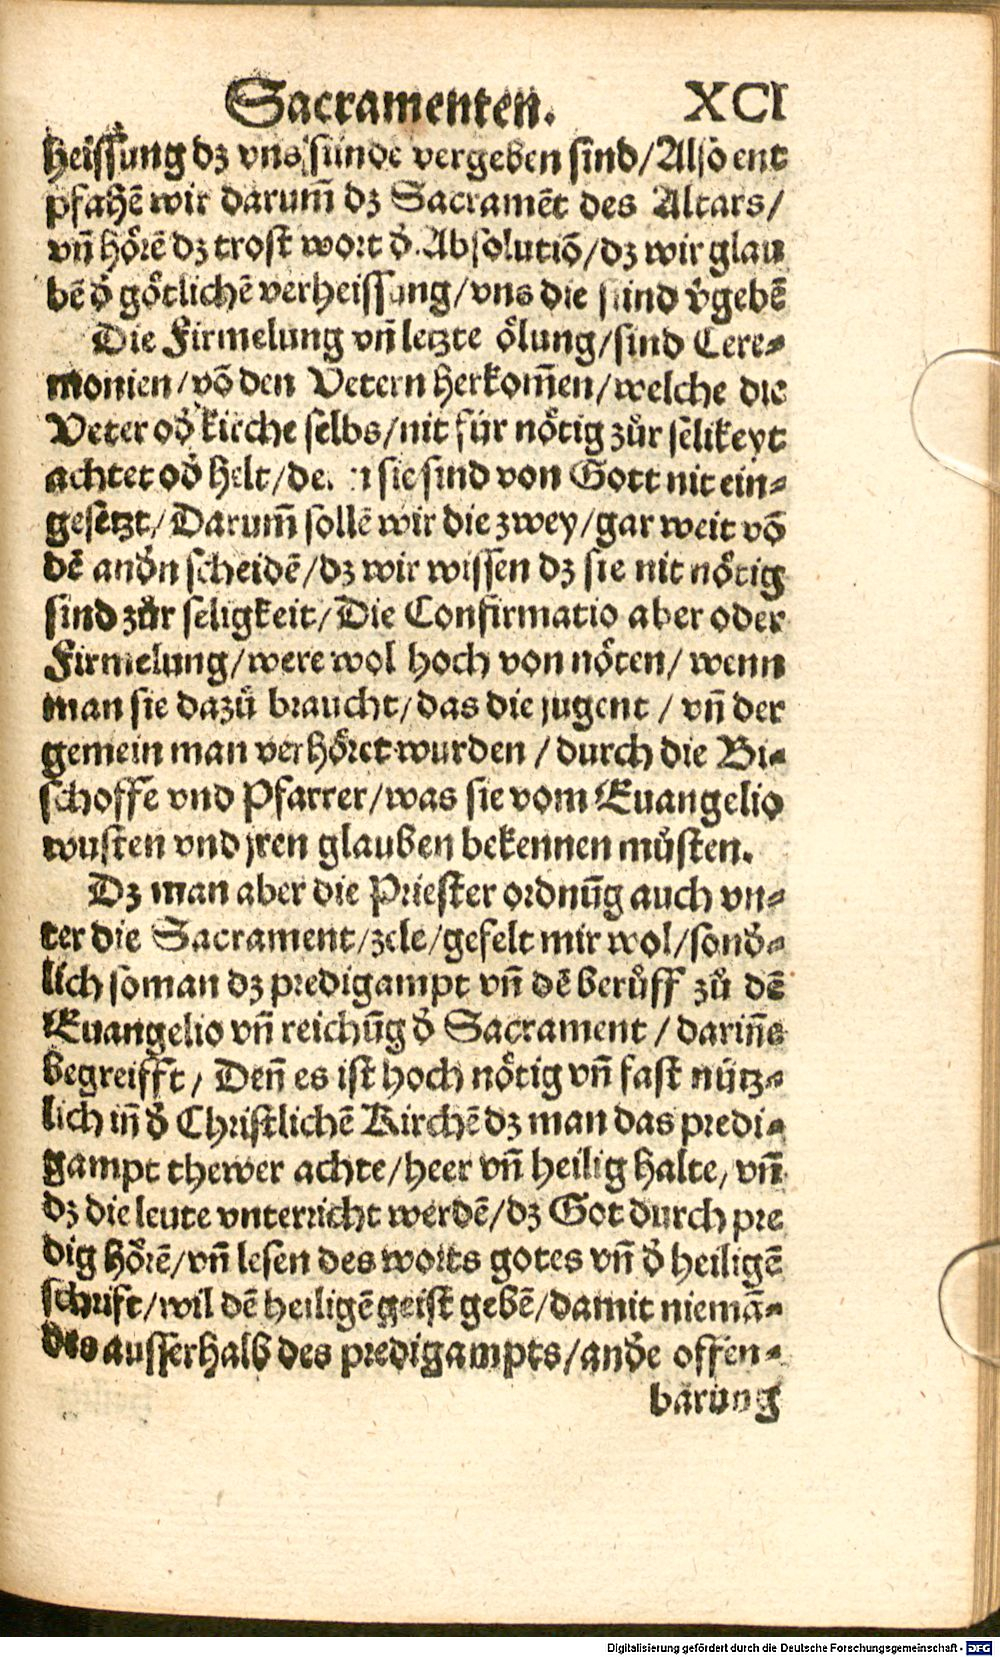 Sacramenten. XCI
heissung dz vns sünde vergeben sind/Also ent
pfahẽ wir darum̃ dz Sacramẽt des Altars/
vñ hörẽ dz trost wort d̕ Absolutiõ/dz wir glau
bẽ d̕ götlichẽ verheissung/vns die sünd v̕gebẽ
Die Firmelung vñ letzte ölung/sind Cere⸗
monien/võ den Vetern herkom̃en/welche die
Veter od̕ kirche selbs/nit für nötig zůr selikeyt
achtet od̕ helt/den sie sind von Gott nit ein⸗
gesetzt/Darum̃ sollẽ wir die zwey/gar weit võ
dẽ and̕n scheidẽ/dz wir wissen dz sie nit nötig
sind zůr seligkeit/Die Confirmatio aber oder
Firmelung/were wol hoch von nöten/wenn
man sie dazů braucht/das die jugent/vñ der
gemein man verhöret wurden/durch die Bi⸗
schoffe vnd Pfarrer/was sie vom Euangelio
wusten vnd jren glauben bekennen můsten.
Dz man aber die Priester ordnũg auch vn⸗
ter die Sacrament/zele/gefelt mir wol/sond̕⸗
lich soman dz predigampt vñ dẽ berůff zů dẽ
Euangelio vñ reichũg d̕ Sacrament/darin̄e
begreifft/Den̄ es ist hoch nötig vñ fast nütz⸗
lich in̄ d̕ Christlichẽ Kirchẽ dz man das predi⸗
gampt thewer achte/heer vñ heilig halte/vñ
dz die leute vnterricht werdẽ/dz Got durch pre
dig hörẽ/vñ lesen des worts gotes vñ d̕ heiligẽ
schrift/wil dẽ heiligẽ geist gebẽ/damit niemã⸗
des ausserhalb des predigampts/and̕e offen⸗
barung
Digitalisierung gefördert durch die Deutsche Forschungsgemeinschaft - DFG